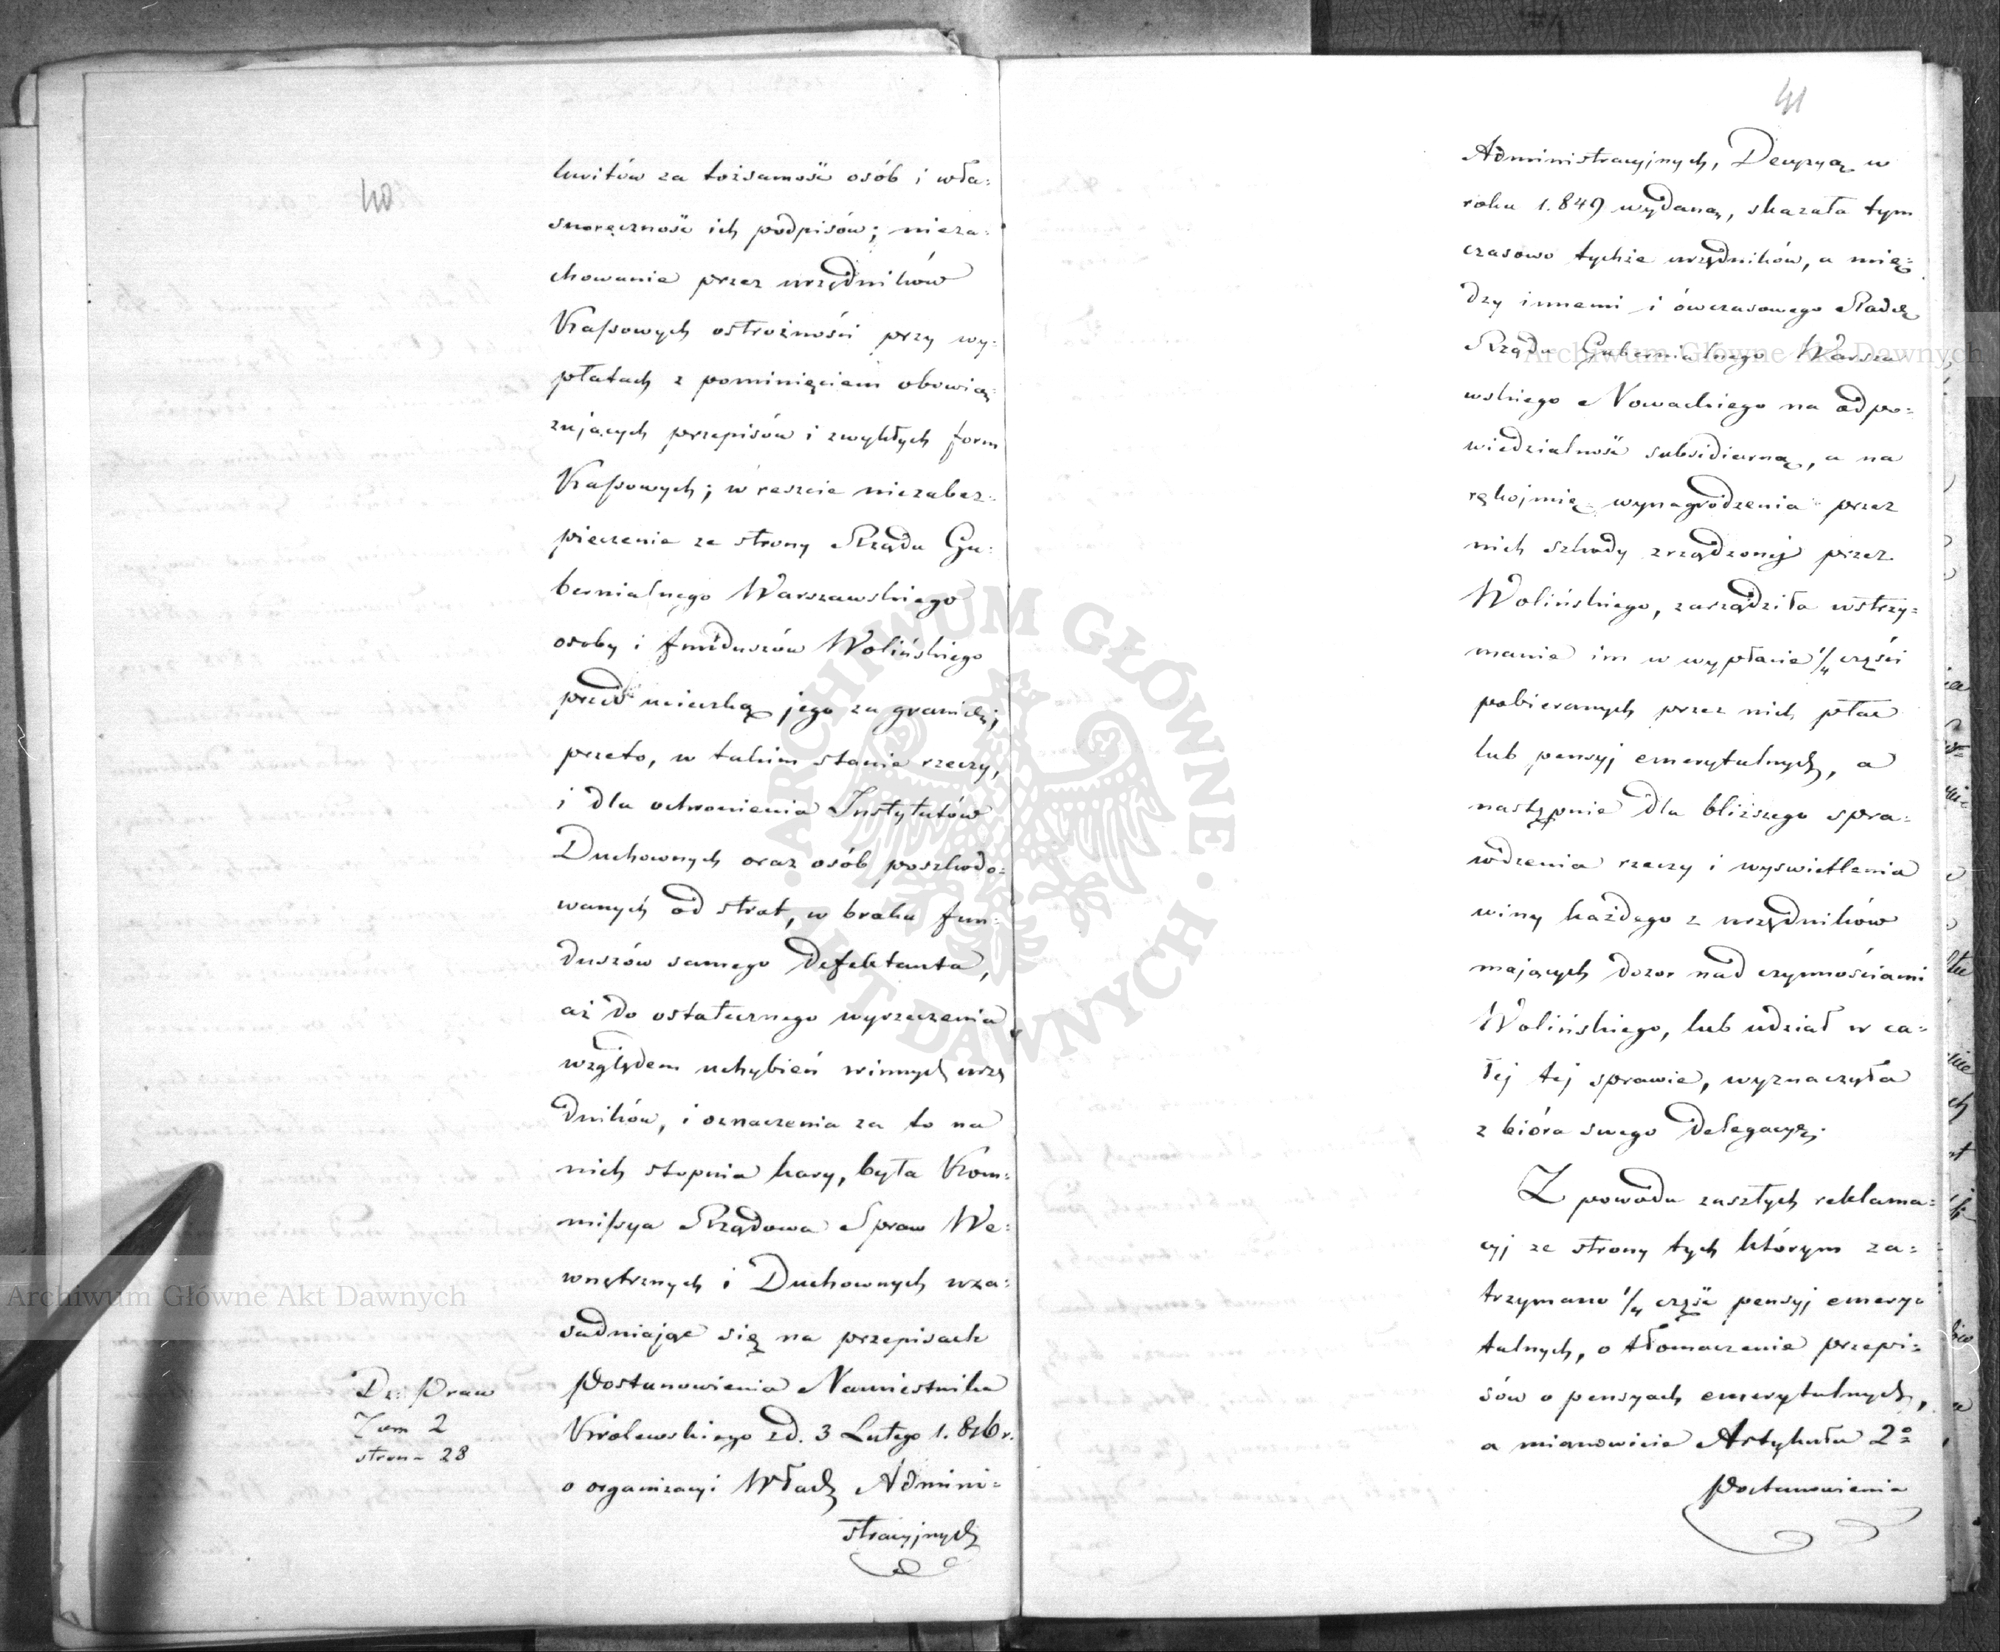 40
kwitów za tożsamość osób i wła=
snoręczność ich podpisów; nieza=
chowanie przez urzędników
Kassowych ostrożności przy wy=
płatach z pominięciem obowią=
zujących przepisów i zwykłych form
Kassowych; w reszcie niezabez=
pieczenie ze strony Rządu Gu=
bernialnego Warszawskiego
osoby i funduszów Wolińskiego
przed ucieczką jego za granicę;
przeto, w takim stanie rzeczy,
i dla uchronienia Instytutów
Duchownych oraz osób poszkodo=
wanych od strat, w braku fun=
duszów samego defektanta,
aż do ostatecznego wyrzeczenia
względem uchybień winnych urzę
dników, i oznaczenia za to na
nich stopnia kary, była Kom=
missya Rządowa Spraw We=
wnętrznych i Duchownych wza=
sadniając się na przepisach
Postanowienia Namiestnika
Królewskiego z d. 3 Lutego 1.816 r.
o organizacyi Władz Admini=
stracyjnych
Dz: Praw
Tom 2
strona 28
41
Administracyjnych, Decyzyą w
roku 1.849 wydaną, skazała tym
czasowo tychże urzędników, a mię=
dzy innemi i ówczasowego Radcę
Rządu Gubernialnego Warsza
wskiego Nowackiego na odpo=
wiedzialność subsidiarną, a na
rękojmię wynagrodzenia przez
nich szkody zrządzonej przez
Wolińskiego, zarządziła wstrzy=
manie im w wypłacie 1/4 części
pobieranych przez nich płac
lub pensyj emerytalnych, a
następnie dla bliższego spra=
wdzenia rzeczy i wyświetlenia
winy każdego z urzędników
mających dozor nad czynnościami
Wolińskiego, lub udział w ca=
łej tej sprawie, wyznaczyła
z bióra swego delegacyę;
Z powodu zaszłych reklama=
cyj ze strony tych którym za=
trzymano 1/4 część pensyj emery=
talnych, o tłomaczenie przepi=
sów o pensyach emerytalnych,
a mianowicie Artykułu 2o
Postanowienia
Archiwum Główne Akt Dawnych
Archiwum Główne Akt Dawnych
ARCHIWUM GŁÓWNE · AKT DAWNYCH ·